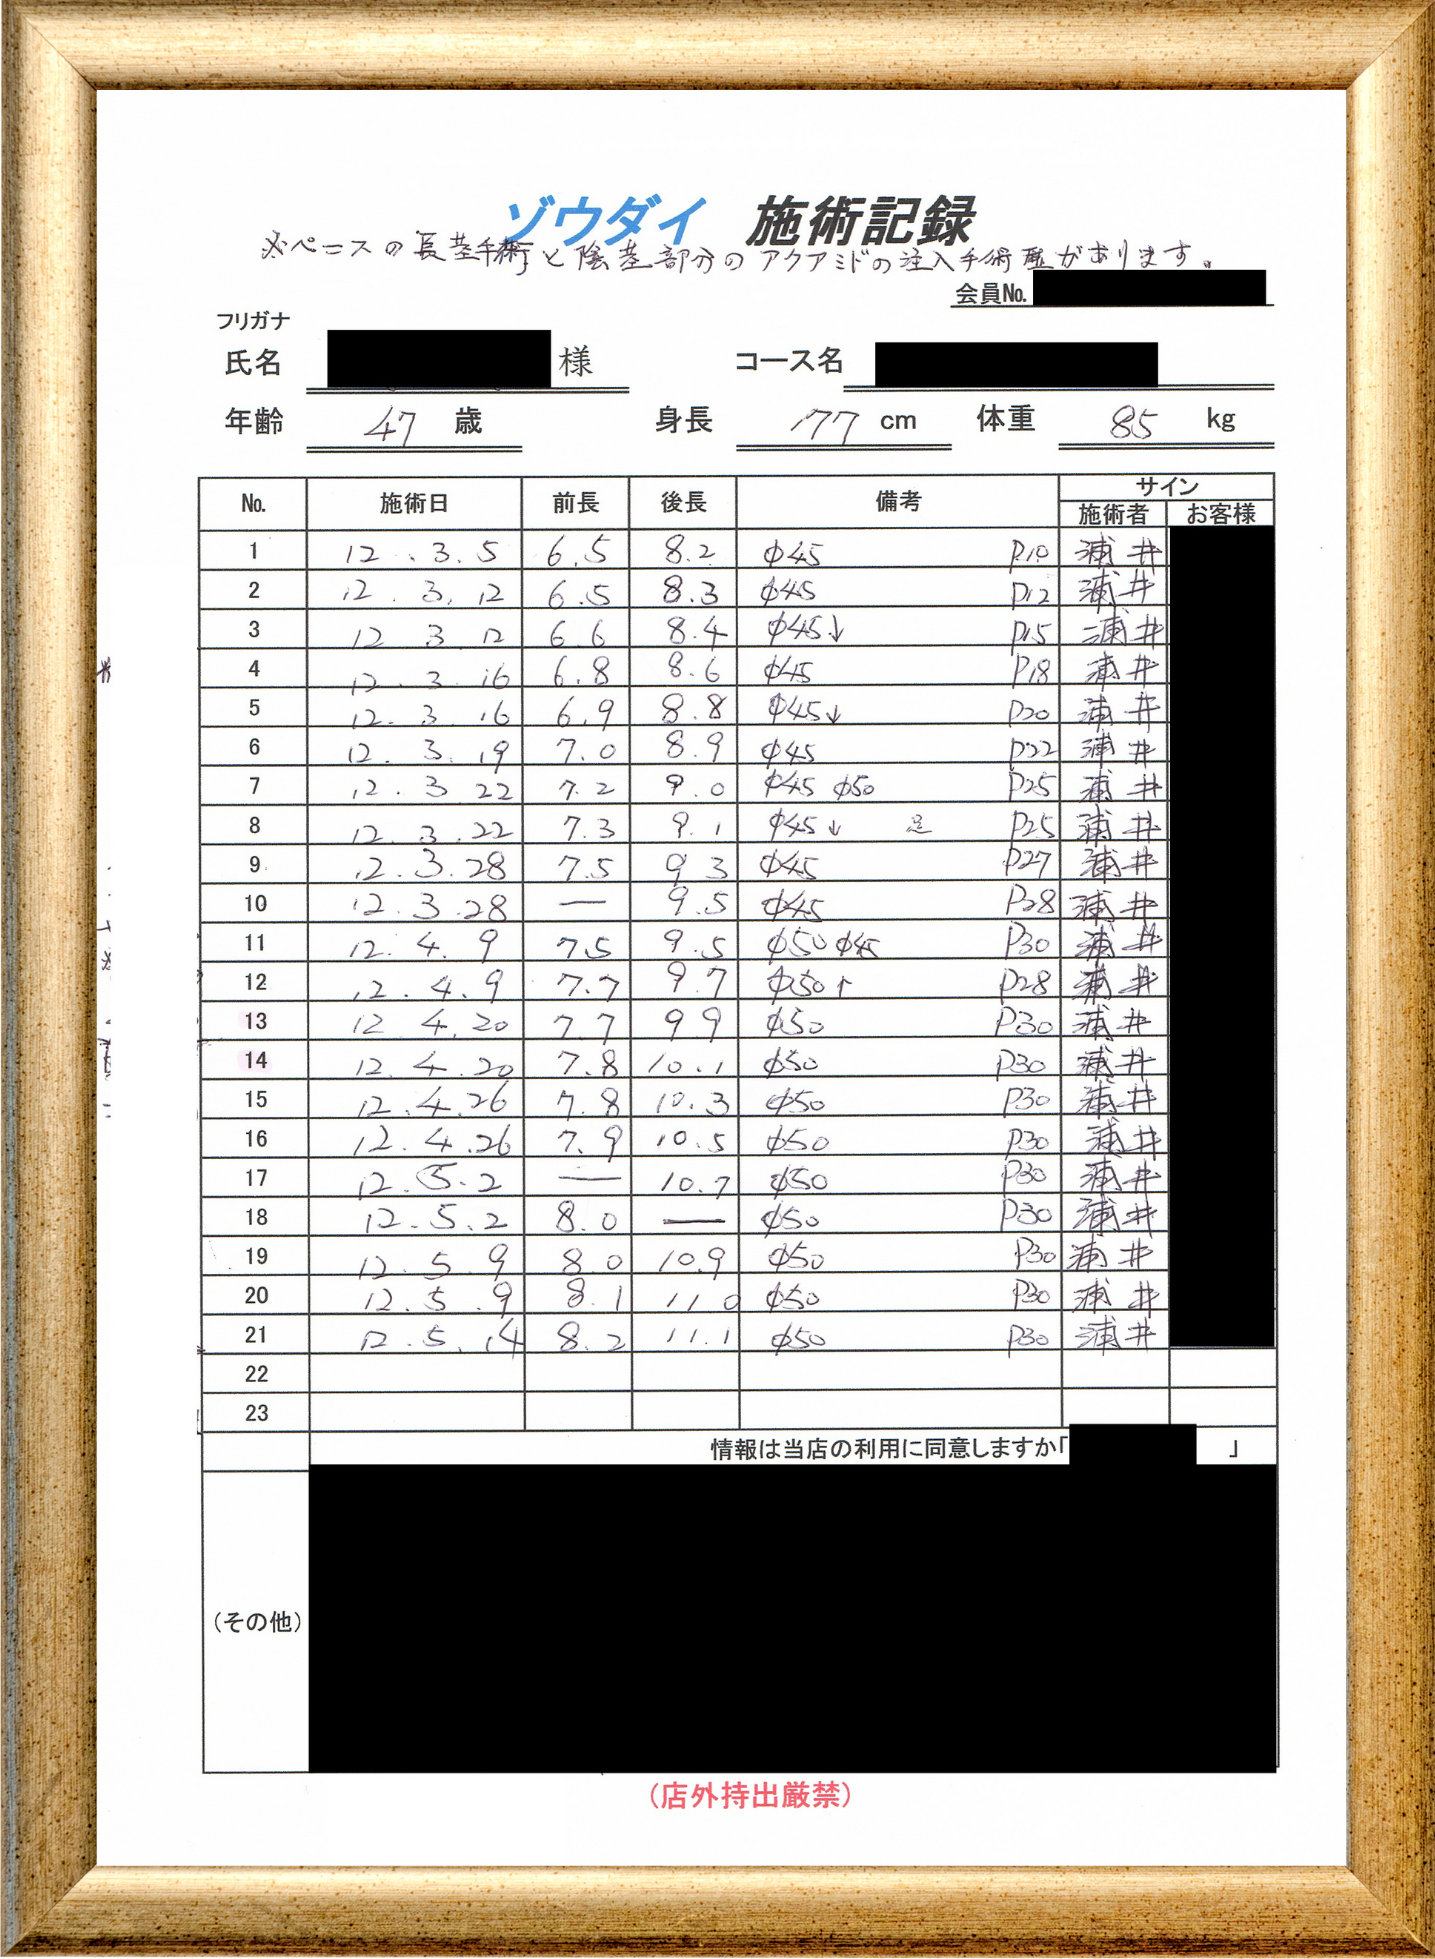 ゾウダイ 施術記録
※ペニスの長茎手術と陰茎部分のアクアミドの注入手術歴があります。
会員No.
フリガナ
氏名 様 コース名
年齢 47 歳 身長 177 cm 体重 85 kg
No. 施術日 前長 後長 備考 サイン
施術者 お客様
1 12.3.5 6.5 8.2 φ45 P10 浦井
2 12.3.12 6.5 8.3 φ45 P12 浦井
3 12 3 12 6.6 8.4 φ45↓ P15 浦井
4 12.3.16 6.8 8.6 φ45 P18 浦井
5 12.3.16 6.9 8.8 φ45↓ P20 浦井
6 12.3.19 7.0 8.9 φ45 P22 浦井
7 12.3 22 7.2 9.0 φ45 φ50 P25 浦井
8 12.3.22 7.3 9.1 φ45↓ P25 浦井
9 12.3.28 7.5 9.3 φ45 P27 浦井
10 12.3.28 — 9.5 φ45 P28 浦井
11 12.4.9 7.5 9.5 φ50 φ45 P30 浦井
12 12.4.9 7.7 9.7 φ50↑ P28 浦井
13 12 4.20 7.7 9.9 φ50 P30 浦井
14 12.4.20 7.8 10.1 φ50 P30 浦井
15 12.4.26 7.8 10.3 φ50 P30 浦井
16 12.4.26 7.9 10.5 φ50 P30 浦井
17 12.5.2 — 10.7 φ50 P30 浦井
18 12.5.2 8.0 — φ50 P30 浦井
19 12.5.9 8.0 10.9 φ50 P30 浦井
20 12.5.9 8.1 11.0 φ50 P30 浦井
21 12.5.14 8.2 11.1 φ50 P30 浦井
22
23
情報は当店の利用に同意しますか「 」
（その他）
（店外持出厳禁）